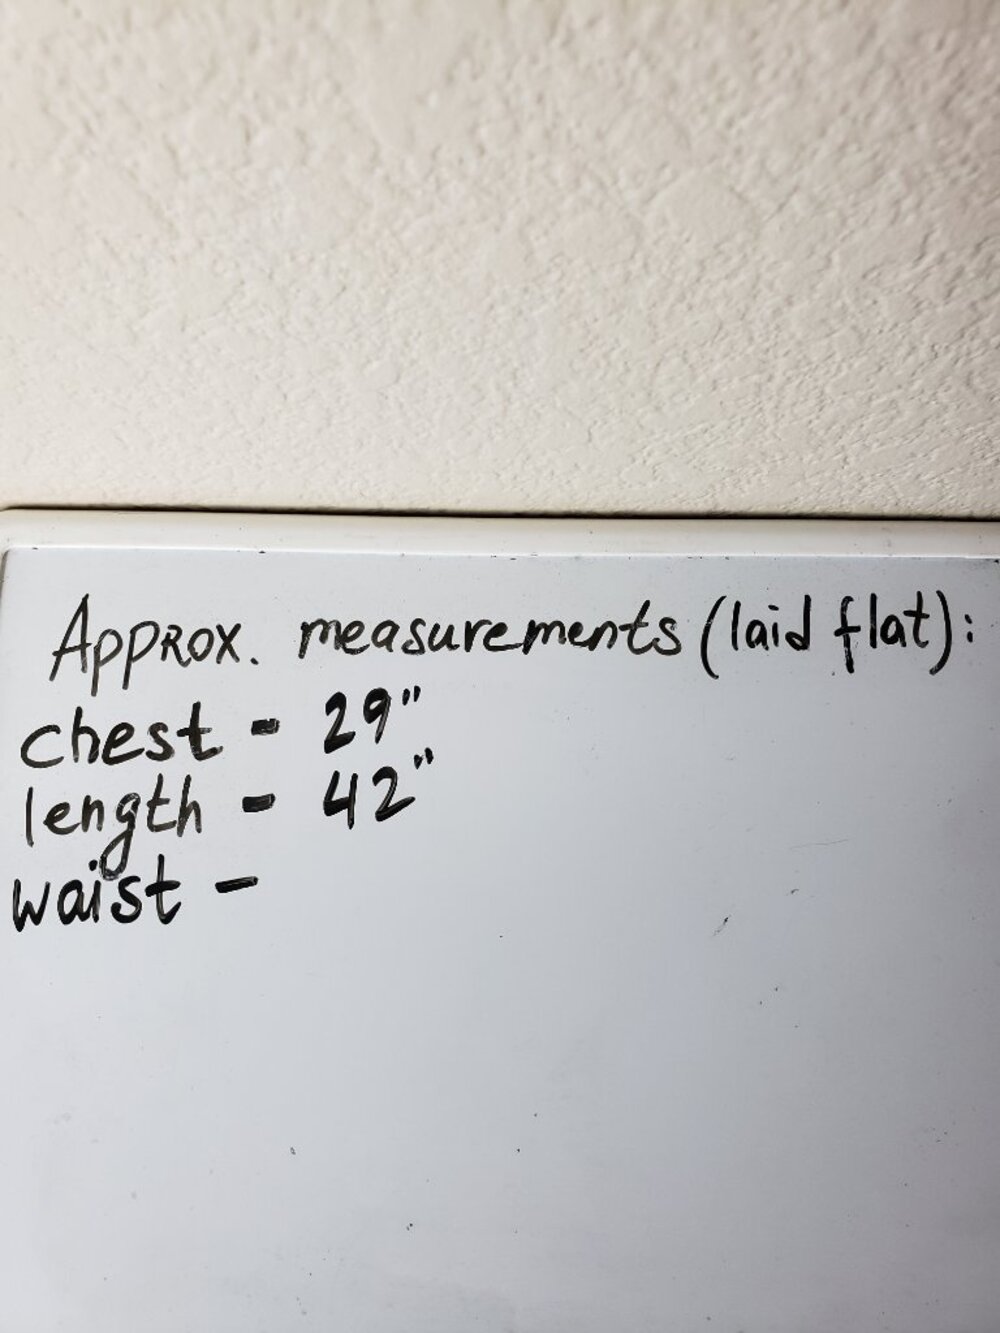 Approx. measurements (laid flat):
chest - 29"
length - 42"
waist -